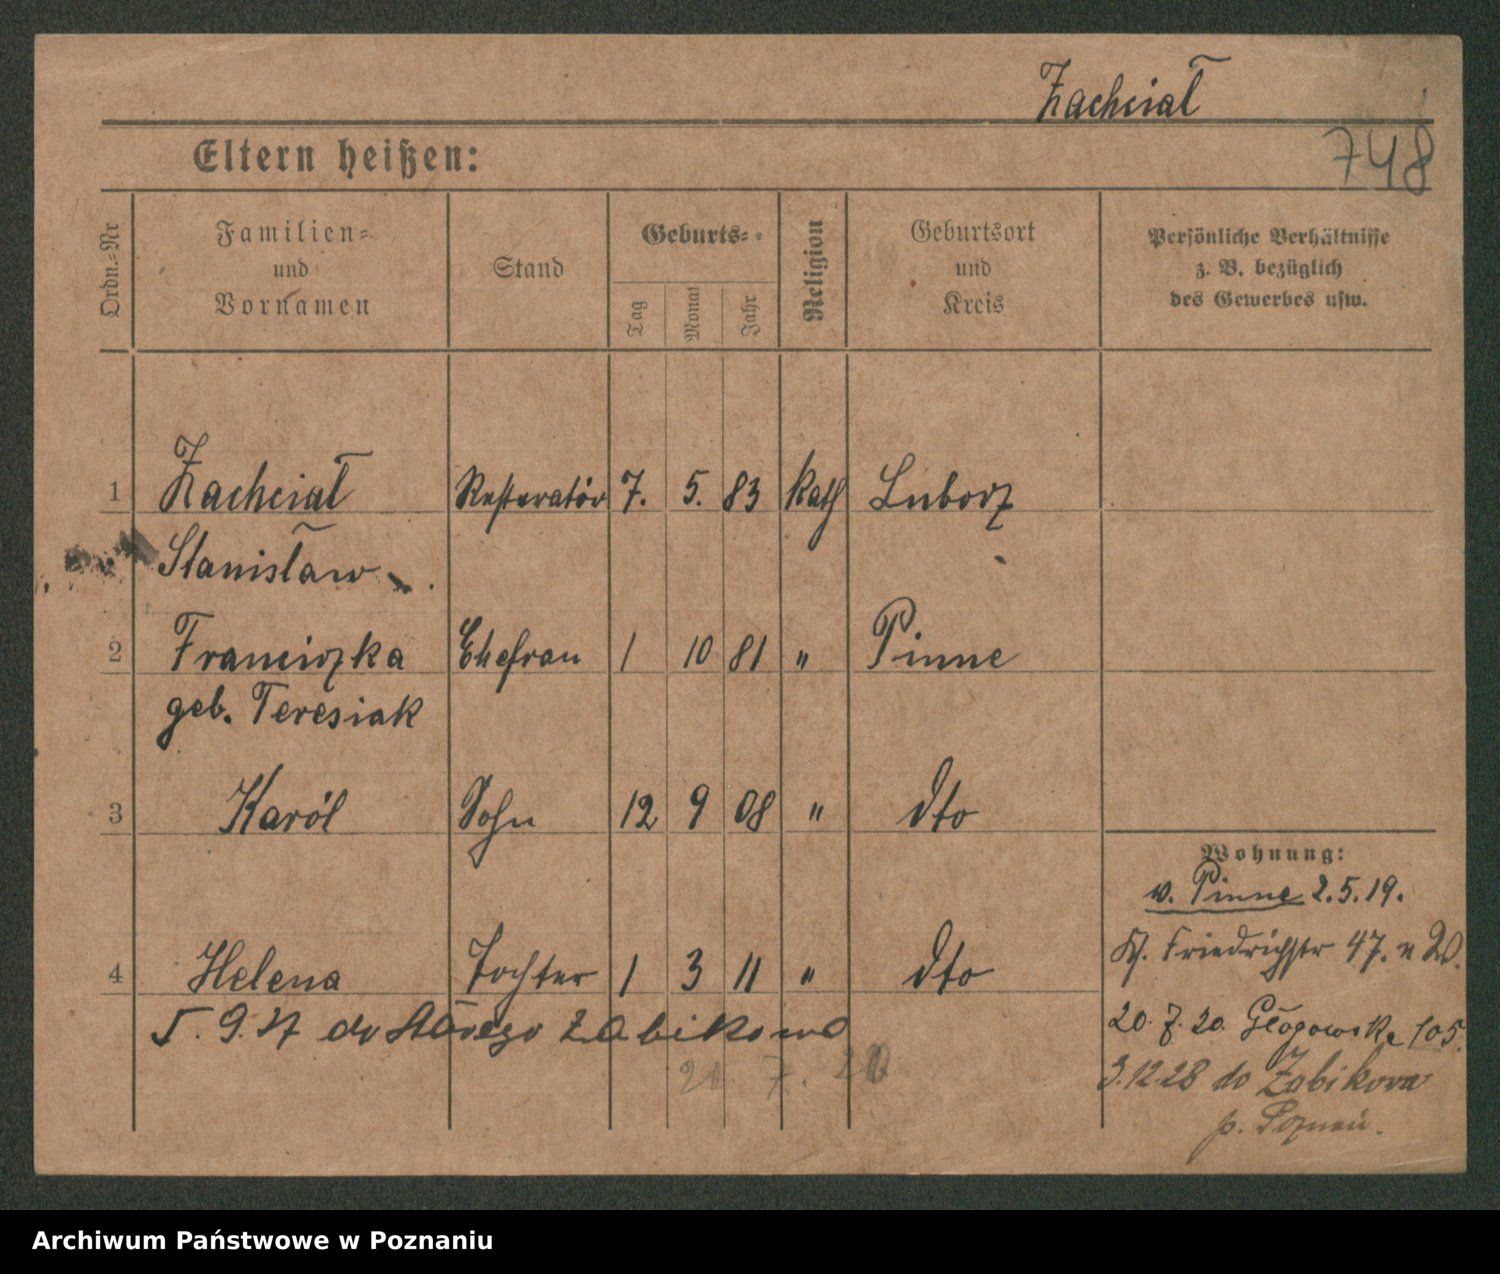 Zachciał
748
Eltern heißen:
Ordn.-Nr
Familien-
und
Vornamen
Stand
Geburts-
Tag
Monat
Jahr
Religion
Geburtsort
und
Kreis
Persönliche Verhältnisse
z. B. bezüglich
des Gewerbes usw.
1 Zachciał Resteratör 7. 5. 83 kath Luborz
Stanisław
2 Franciszka Ehefrau 1 10 81 " Pinne
geb. Teresiak
3 Karól Sohn 12 9 08 " dto
Wohnung:
v. Pinne 2.5.19.
4 Helena Tochter 1 3 11 " dto
Friedrichstr 47.
5. 9. do Starego Żabikowo
20. 7. 20. Głogowska 105.
20 7. 20
3.12.28 do Żabikova
p. Poznań.
Archiwum Państwowe w Poznaniu